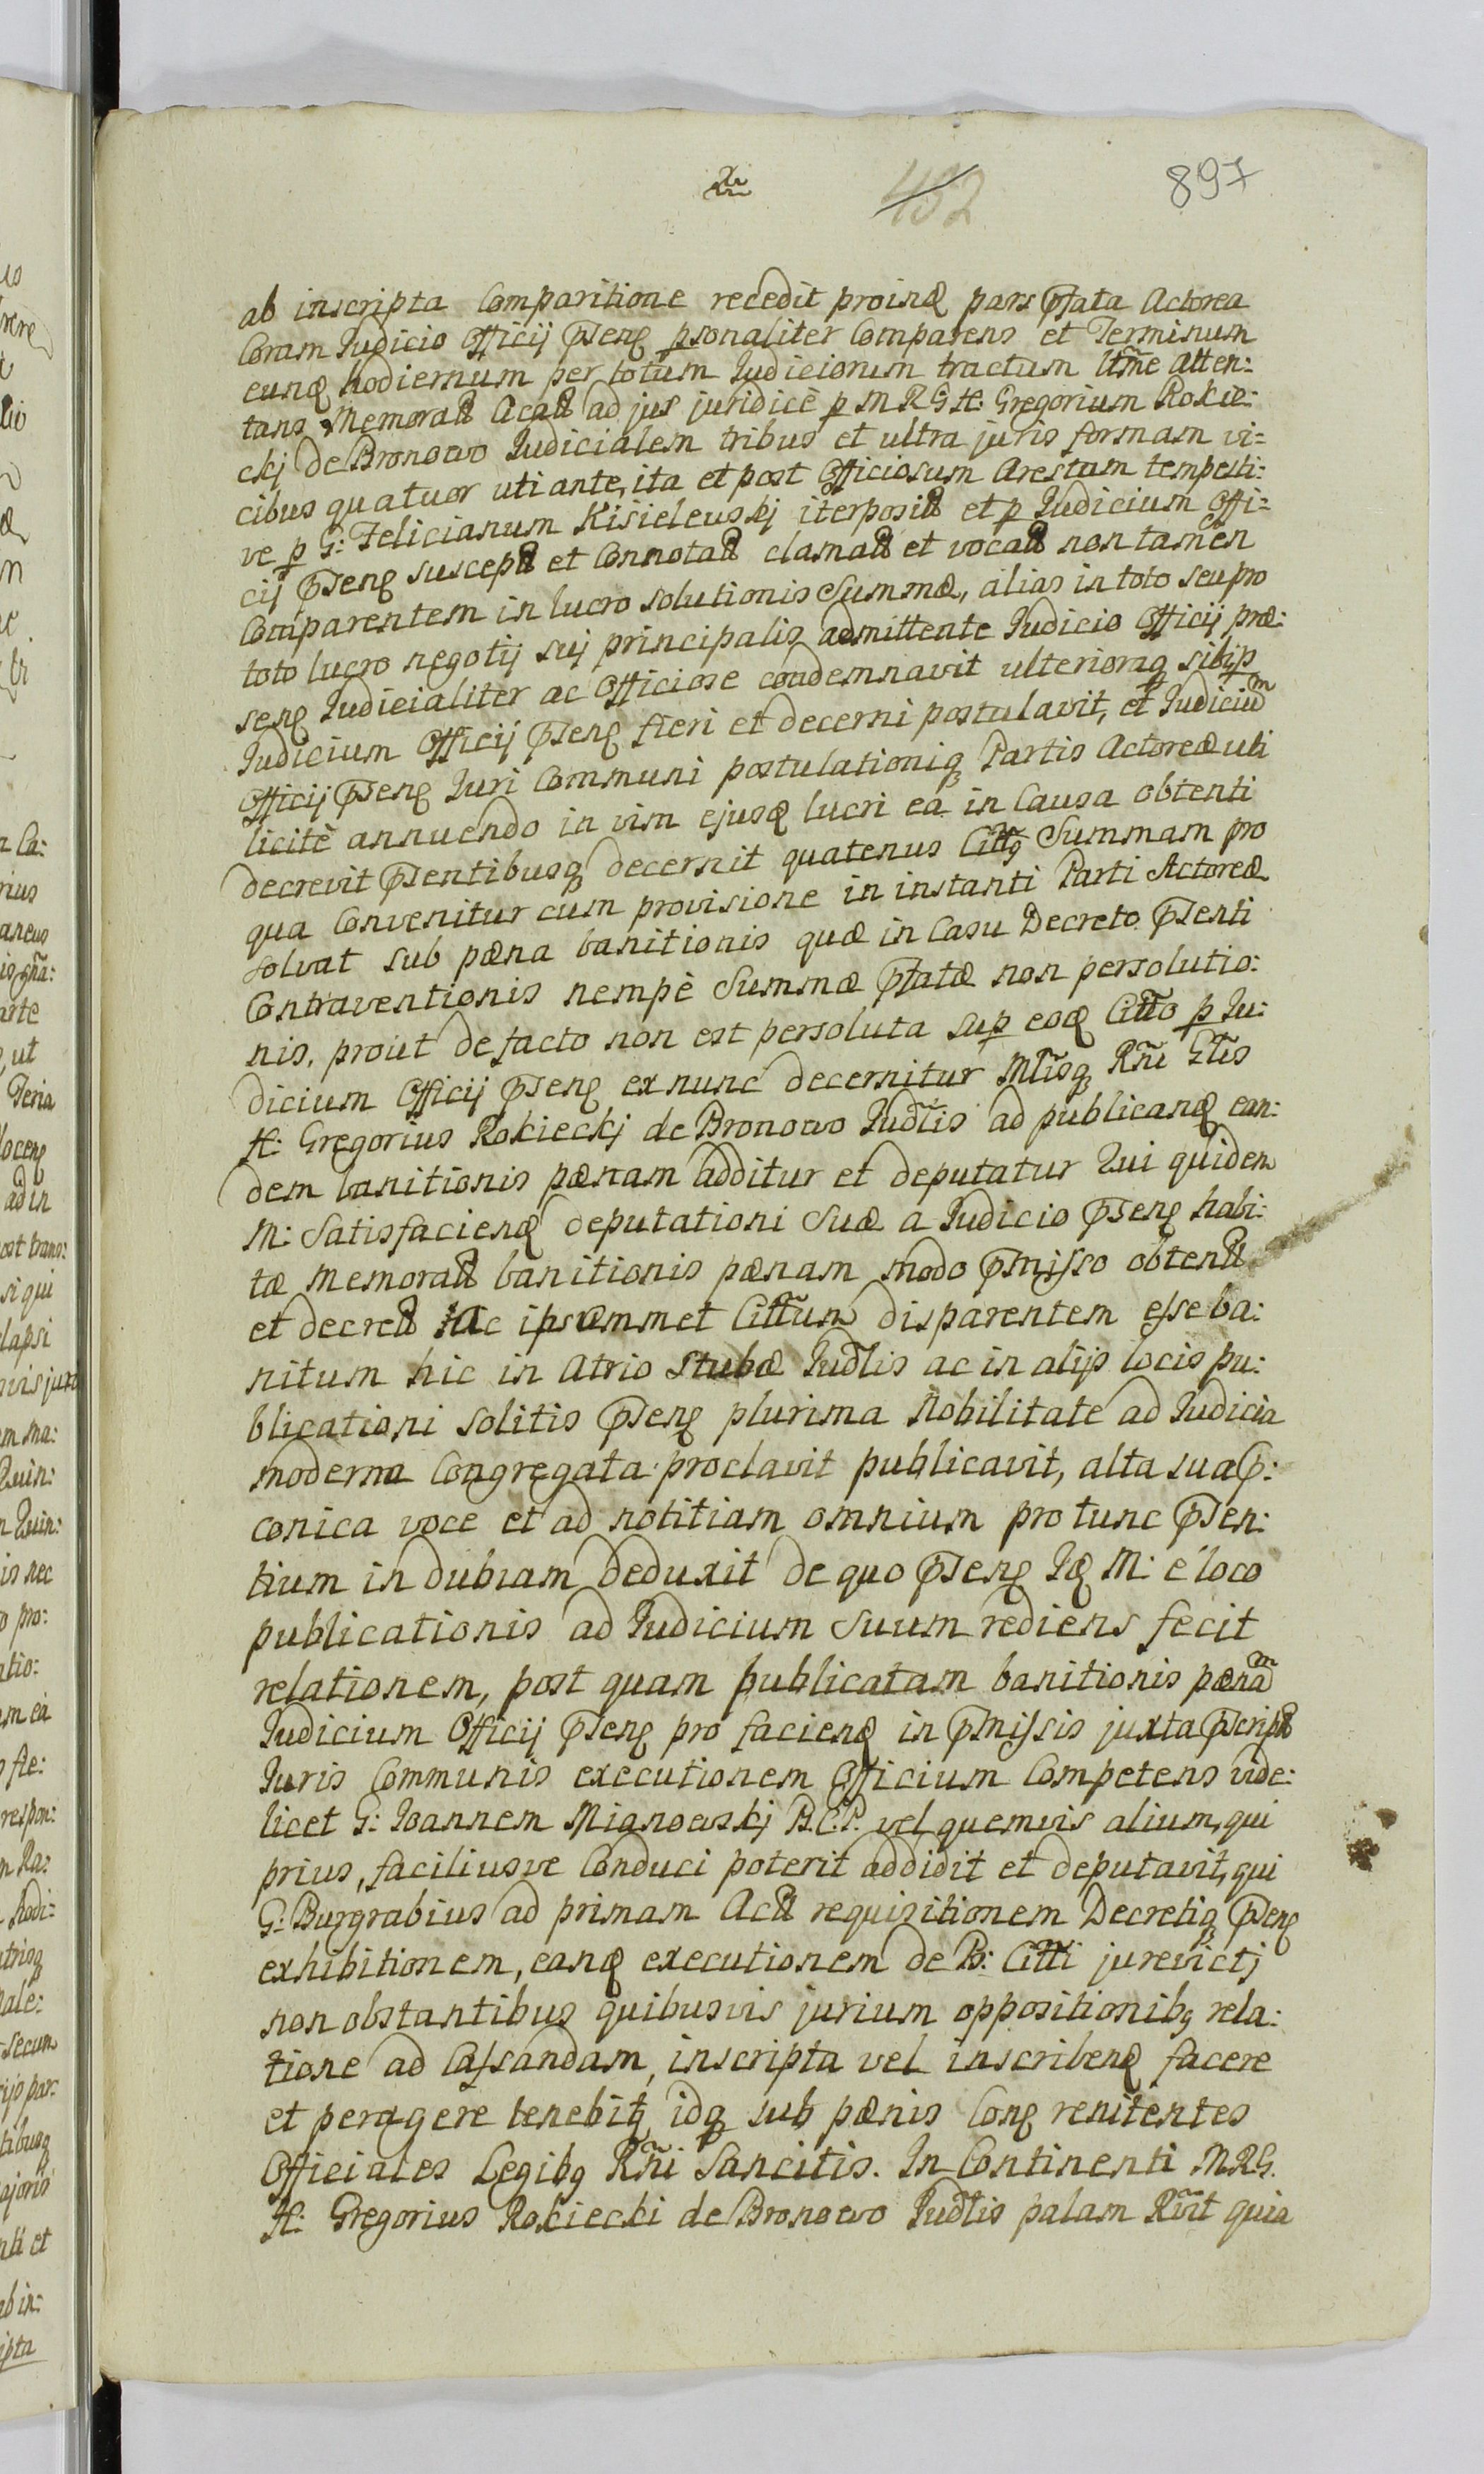 452
897
ab inscripta Comparitione recedit proinꝺ pars Pfata Actorea
Coram Judicio Officij Psenꝭ psonaliter Comparens et Terminum
eunꝺ hodiernum per totum Judiciorum tractum ltm̃e Atten:
tans Memorat Acat ad jus juridicè p M R G H: Gregorium Rokie:
ckj de Bronowo Judicialem tribus et ultra juris formam vi=
cibus quatuor uti ante, ita et post Officiosum Arestum tempesti:
ve p G: Felicianum Kisielewskj iterposit et p Judicium Offi=
cij Psenꝭ suscept et Connotat clamat et vocat non tamen
Comparentem in lucro solutionis Summæ, alias in toto seu pro
toto lucro negotij suj principalis admittente Judicio Officij præ:
senꝭ Judicialiter ac Officiose condemnavit ulterioraqꝫ sibi p
Judicium Officij Psenꝭ fieri et decerni postulavit, et Judicium
Officij Psenꝭ Juri Communi postulationiqꝫ Partis Actoreæ uti
licitè annuendo in vim ejusꝺ lucri ea in Causa obtenti
decrevit Psentibusqꝫ decernit quatenus Cittꝯ Summam pro
qua Convenitur cum provisione in instanti Parti Actoreæ
solvat sub pæna banitionis quæ in Casu Decreto Psenti
Contraventionis nempè Summæ Pfatæ non persolutio:
nis, prout de facto non est persoluta sup eoꝺ Citto p Ju:
dicium Officij Psenꝭ ex nunc decernitur Mlĩsqꝫ Rñi Gñlis
H: Gregorius Rokieckj de Bronowo Judlis ad publicanꝺ ean:
dem banitionis pænam additur et deputatur Qui quidem
M: Satisfacienꝺ deputationi Suæ a Judicio Psenꝭ habi:
tæ memorat banitionis pænam modo Pmisso obtent
et decret hac ipsummet Cittum disparentem esse ba:
nitum hic in Atrio Stubæ Judlis ac in alijs locis pu:
blicationi solitis Psenꝭ plurima Nobilitate ad Judicia
moderna Congregata proclavit publicavit, alta sua P:
conica voce et ad notitiam omnium pro tunc Psen:
tium indubiam deduxit de quo Psenꝭ Iꝺ M: e loco
publicationis ad Judicium Suum rediens fecit
relationem, post quam publicatam banitionis pænam
Judicium Officij Psenꝭ pro facienꝺ in Pmissis juxta Pscript
Juris Communis executionem Officium Competens vide:
licet G: Joannem Mignowskj B.C.P. vel quemvis alium, qui
prius, faciliusve Conduci poterit addidit et deputavit, qui
G: Burgrabius ad primam Act requisitionem Decretiqꝫ Psenꝭ
exhibitionem, eanꝺ executionem de B: Citti jurevictj
non obstantibus quibusvis jurium oppositionibꝯ rela:
tione ad Cassandam, inscripta vel inscribenꝺ facere
et peragere tenebitꝛ idqꝫ sub pænis Conꝭ renitentes
Officiales Legibꝯ Rñi Sancitis. In Continenti M.R.G.
H: Gregorius Rokiecki de Bronowo Judlis palam Rvit quia